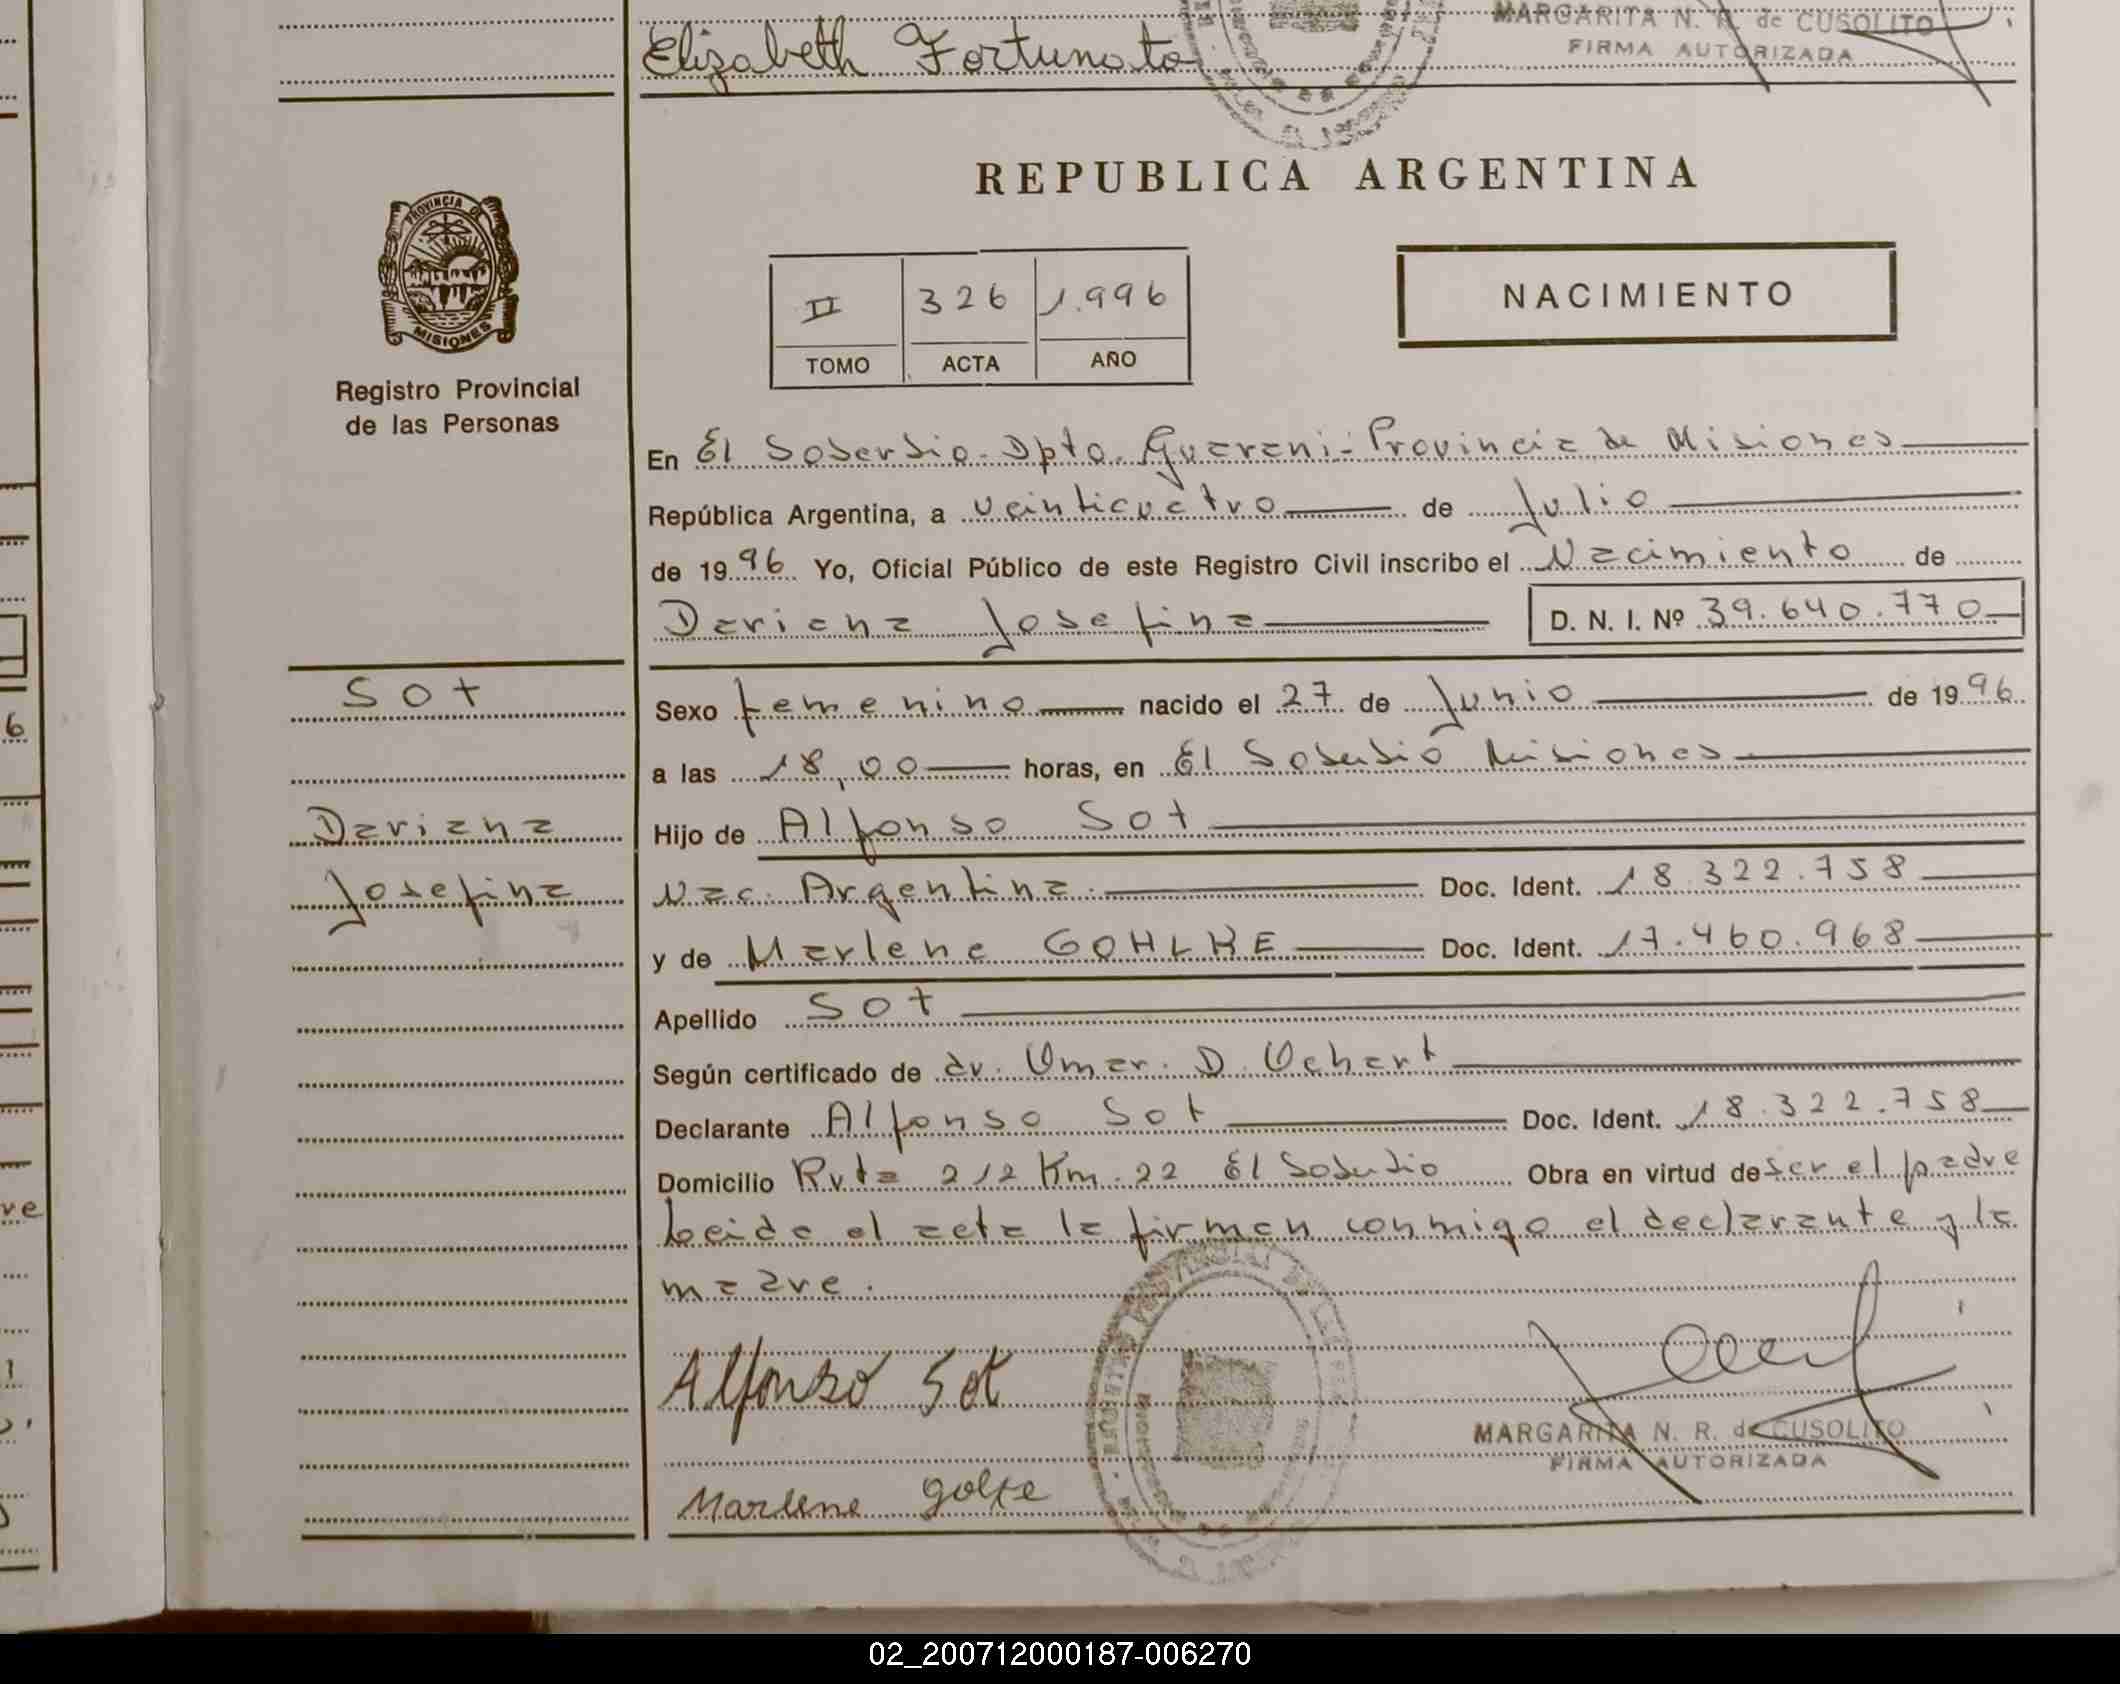 Elizabeth Fortunato
MARGARITA N. R. de CUSOLITO
FIRMA AUTORIZADA
REPUBLICA ARGENTINA
PROVINCIA DE
MISIONES
Registro Provincial
de las Personas
II 326 1.996
TOMO ACTA AÑO
NACIMIENTO
En El Soberbio - Dpto. Guarani - Provincia de Misiones
República Argentina, a veinticuatro de Julio
de 1996 Yo, Oficial Público de este Registro Civil inscribo el Nacimiento de
Dariana Josefina D. N. I. Nº 39.640.770
Sot
Dariana
Josefina
Sexo femenino nacido el 27 de Junio de 1996
a las 18,00 horas, en El Soberbio Misiones
Hijo de Alfonso Sot
Nac. Argentina. Doc. Ident. 18.322.758
y de Marlene GOHLKE Doc. Ident. 17.460.968
Apellido Sot
Según certificado de dr. Omar. D. Ochart
Declarante Alfonso Sot Doc. Ident. 18.322.758
Domicilio Ruta 212 Km. 22 El Soberbio Obra en virtud de ser el padre
Leida el acta la firman conmigo el declarante y la
madre.
Alfonso Sot
MARGARITA N. R. de CUSOLITO
FIRMA AUTORIZADA
Marlene golke
02_200712000187-006270